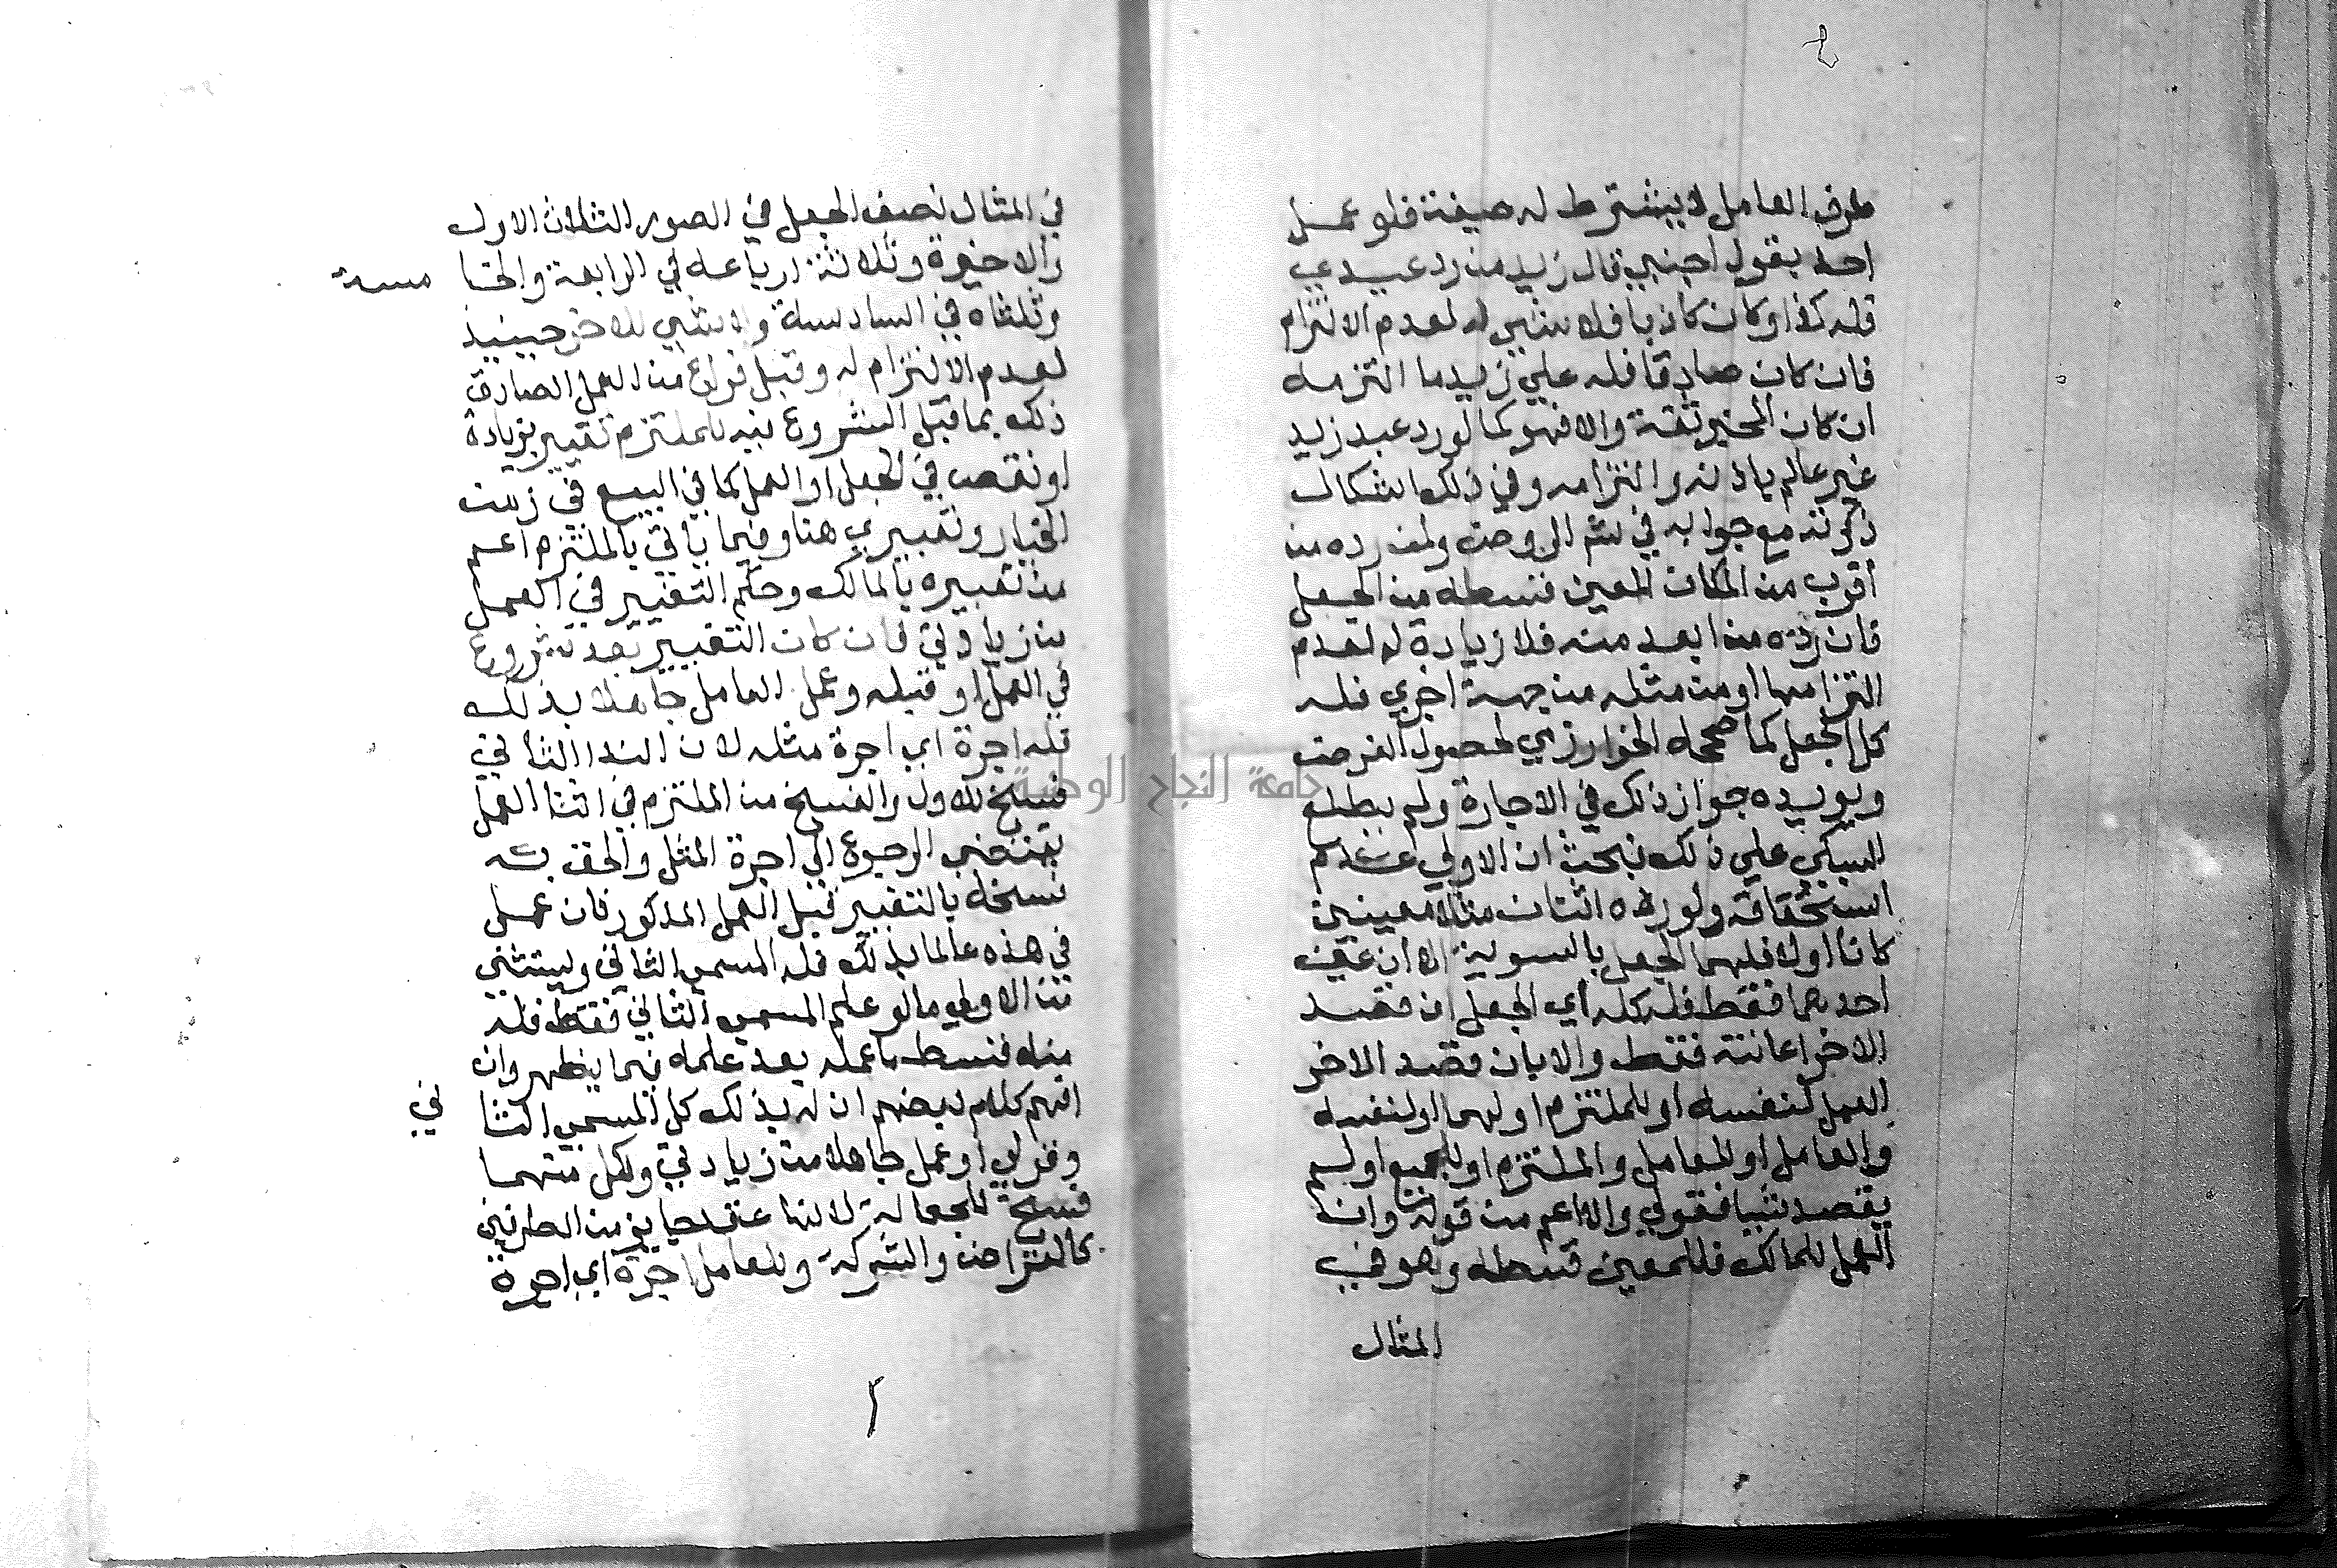 طرف العامل لا يشترط له صيغة فلو عمل
احد بقول اجنبي قال زيد من رد عبدي
فله كذا وكان كاذبا فلا شي له لعدم الالتزام
فان كان صادقا فله علي زيد ما التزمه
ان كان المخبر ثقة والا فهو كما لو رد عبد زيد
غير عالم باذنه والتزامه وفي ذلك اشكال
ذكرته مع جوابه في شرح الروض ولمن رده من
اقرب من المكان المعين قسطه من الجعل
فان رده من ابعد منه فلا زيادة له لعدم
التزامها او من مثله من جهة اخري فله
كل الجعل كما صححه الخوارزمي لحصول الغرض
ويويده جواز ذلك في الاجارة ولم يطلع
السبكي علي ذلك فبحث ان الاولي عدم
استحقاقه ولو رده اثنان مثلا معينين
كانا اولا فلهما الجعل بالسوية الا ان عين
احدهما فقط فله كله اي الجعل ان قصد
الاخر اعانته فقط والا بان قصد الاخر
العمل لنفسه او للملتزم او لهما او لنفسه
والعامل او للعامل والملتزم او للجميع او لم
يقصد شيا فقولي والا اعم من قوله وان
العمل للمالك فللمعين قسطه وهو في
المثال
في المثال نصف الجعل في الصور الثلاث الاول
والاخيرة وثلاثة ارباعه في الرابعة والخا مسة
وثلثاه في السادسة ولا شي للاخر حينيذ
لعدم الالتزام له وقبل فراغ من العمل الصادق
ذلك بما قبل الشروع فيه للملتزم تغيير بزيادة
او نقص في الجعل او العمل كما في البيع في زمن
الخيار وتعبيري هنا وفيما ياتي بالملتزم اعم
من تعبيره بالمالك وحكم التغيير في العمل
من زيادتي فان كان التغيير بعد شروع
في العمل او قبله وعمل العامل جاهلا بذلك
فله اجرة اي اجرة مثله لان الندا الثاني
فسخ للاول والفسخ من الملتزم في اثنا العمل
يقتضي الرجوع الي اجرة المثل والحق به
فسخه بالتغيير قبل العمل المذكور فان عمل
في هذه عالما بذلك فله المسمي الثاني ويستثني
من الاولي ما لو علم المسمي الثاني فقط فله
منه قسط ما عمله بعد علمه فيما يظهر وان
افهم كلام بعضهم ان له بذلك كل المسمي الثا ني
وقولي او عمل جاهلا من زيادتي ولكل منهما
فسخ للجعالة لانها عقد جايز من الطرفين
كالقراض والشركة وللعامل اجرة اي اجرة
جامعة النجاح الوطنية